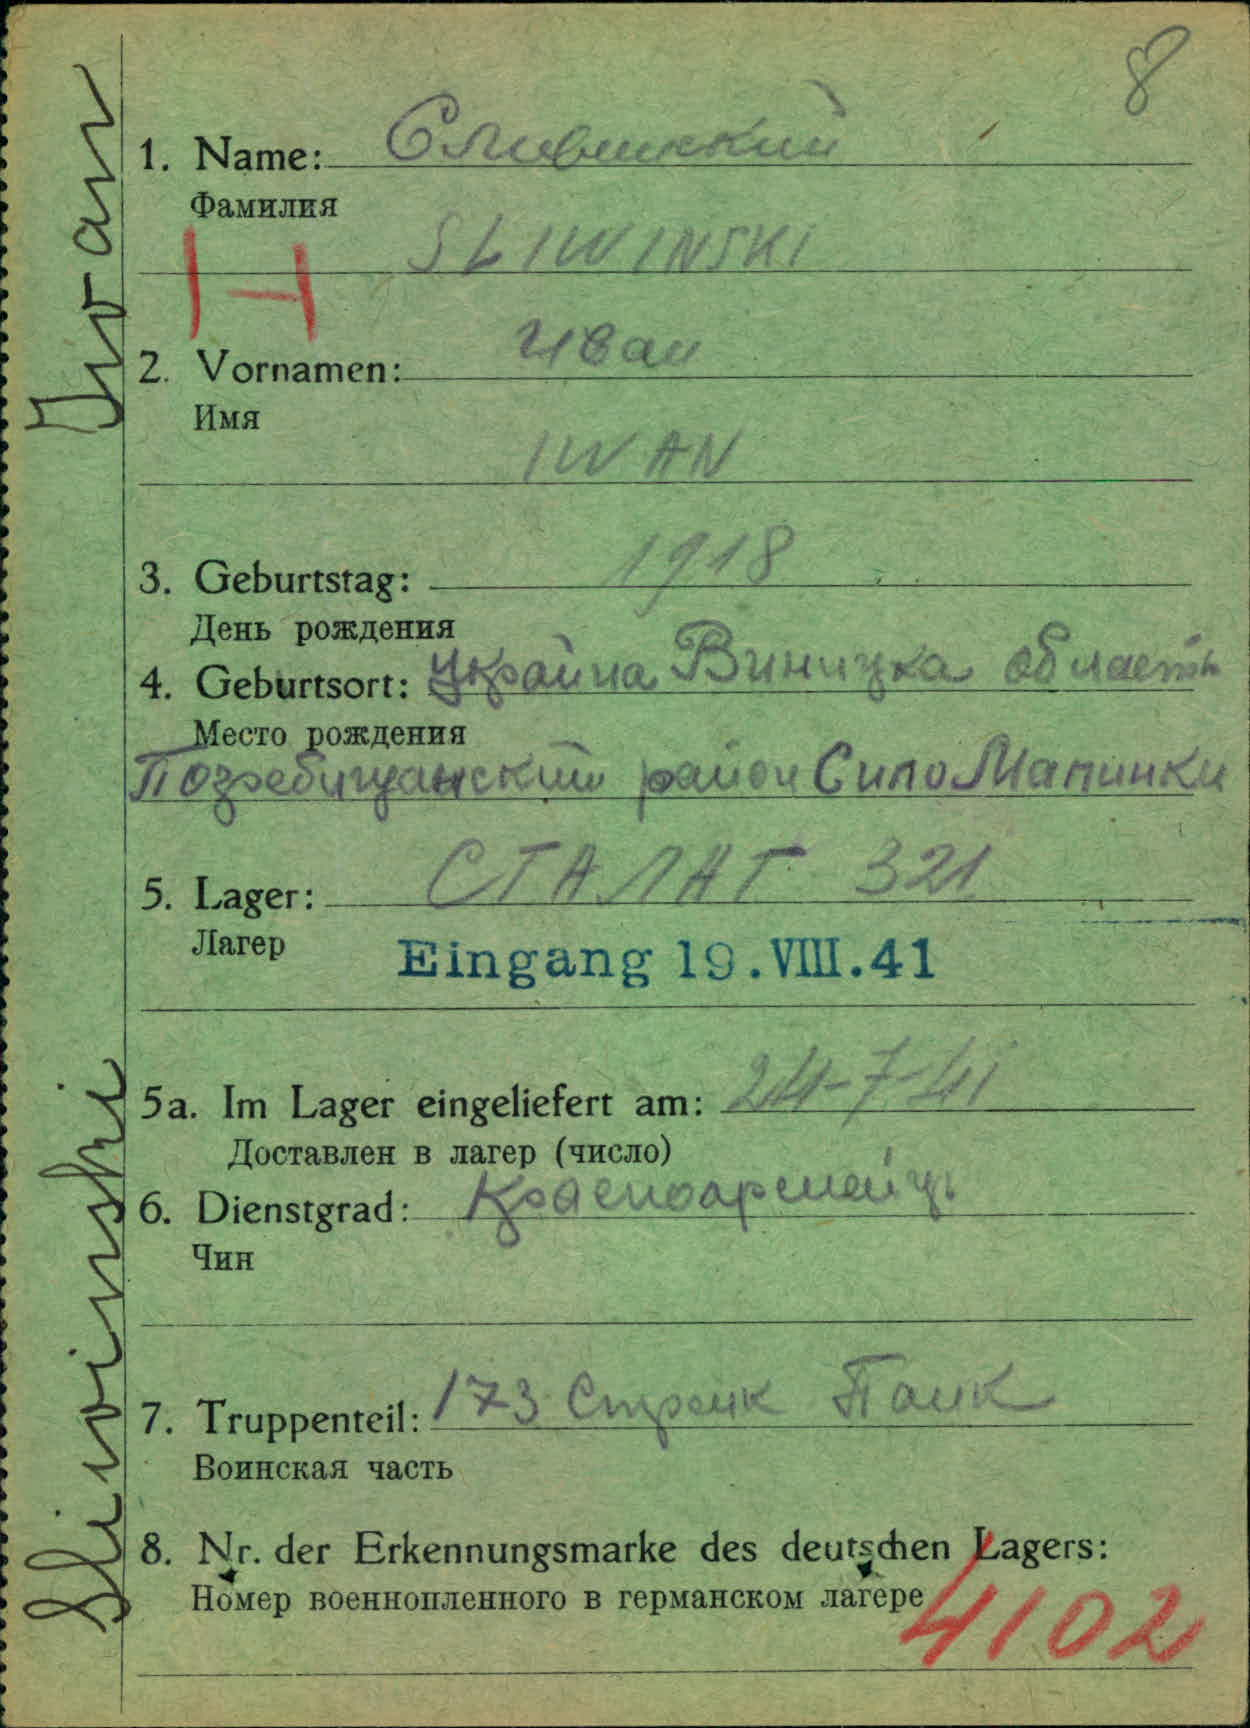 8
1. Name: Сливинский
Фамилия
SLIWINSKI
H
2. Vornamen: Иван
Имя
IWAN
3. Geburtstag: 1918
День рождения
4. Geburtsort: Украина Виницка область
Место рождения
Позребищанский район Сило Малинки
5. Lager: СТАЛАГ 321
Лагер
Eingang 19.VIII.41
5a. Im Lager eingeliefert am: 24-7-41
Доставлен в лагер (число)
6. Dienstgrad: Красноармейць
Чин
7. Truppenteil: 173 Стрелк Полк
Воинская часть
8. Nr. der Erkennungsmarke des deutschen Lagers:
Номер военнопленного в германском лагере
4102
Sliwinski Iwan